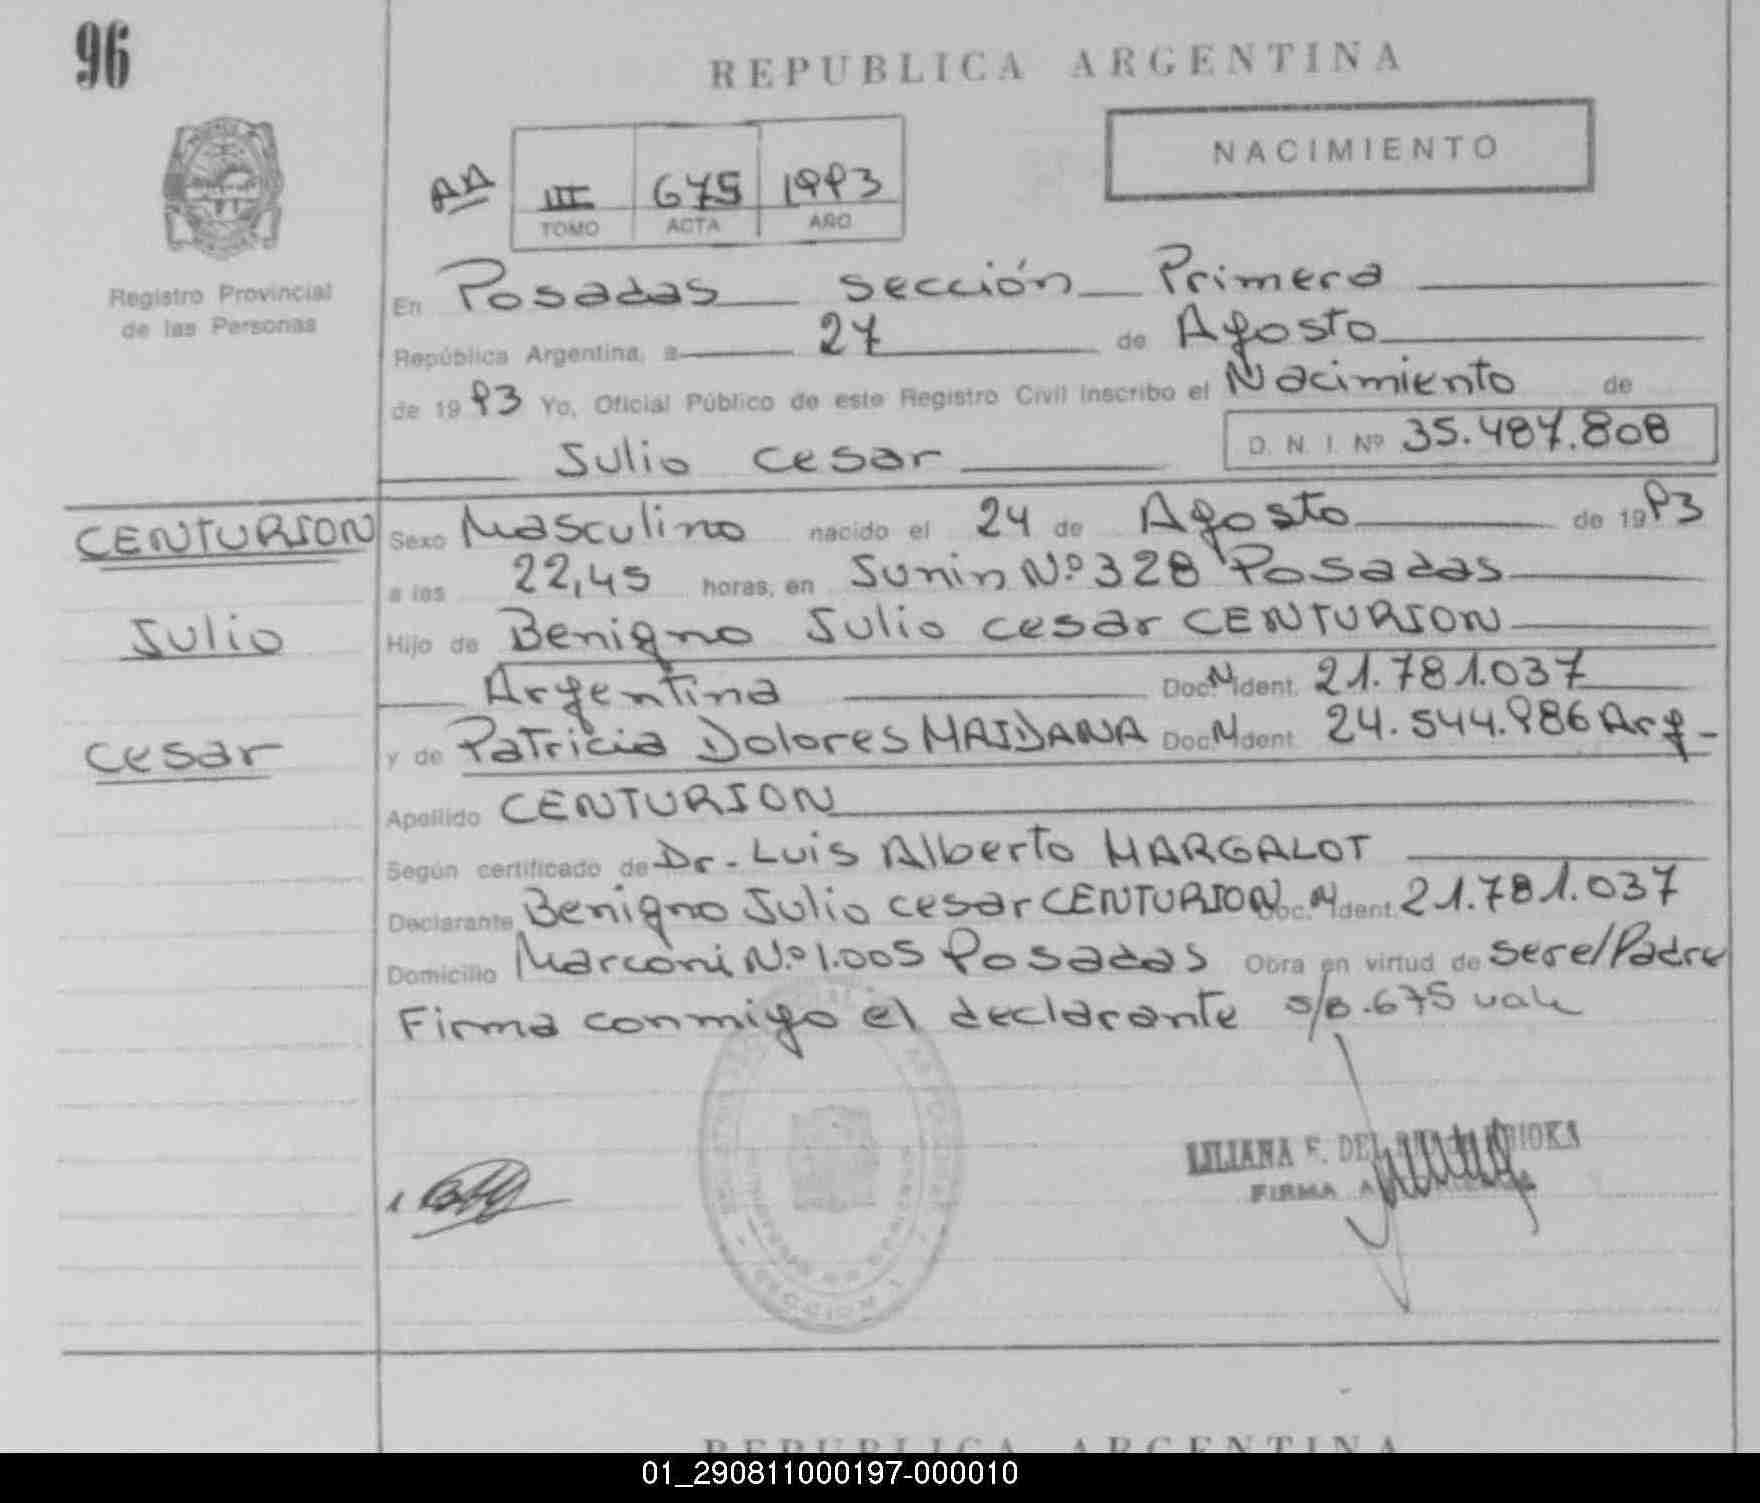 96
REPUBLICA ARGENTINA
NACIMIENTO
III 675 1993
TOMO ACTA AÑO
Registro Provincial
de las Personas
En Posadas sección Primera
República Argentina, a 27 de Agosto
de 1993 Yo, Oficial Público de este Registro Civil inscribo el Nacimiento de
Julio Cesar D. N. I. Nº 35.487.808
CENTURION
Julio
Cesar
Sexo Masculino nacido el 24 de Agosto de 1993
a las 22,45 horas, en Junin N.º 328 Posadas
Hijo de Benigno Julio Cesar CENTURION
Argentina Doc. N. Ident. 21.781.037
y de Patricia Dolores MAIDANA Doc. N. Ident. 24.544.986 Arg-
Apellido CENTURION
Según certificado de Dr. Luis Alberto MARGALOT
Declarante Benigno Julio Cesar CENTURION Doc. N. Ident. 21.781.037
Domicilio Marconi N.º 1.005 Posadas Obra en virtud de ser el Padre
Firma conmigo el declarante s/B.675 vale
LILIANA F. DEL
FIRMA
SECCION 1
REPUBLICA ARGENTINA
01_290811000197-000010